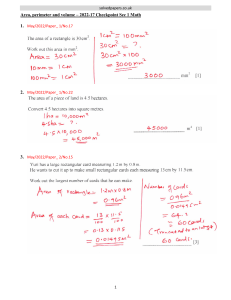 solvedpapers.co.uk
Area, perimeter and volume – 2022-17 Checkpoint Sec 1 Math
1. May/2022/Paper_1/No.17
The area of a rectangle is 30 cm²
Work out this area in mm².
1cm² = 100mm²
30cm² = ?
30cm² × 100
= 3000mm²
Area = 30cm²
10mm = 1cm
100mm² = 1cm²
3000 mm² [1]
2. May/2022/Paper_2/No.23
The area of a piece of land is 4.5 hectares.
Convert 4.5 hectares into square metres.
1ha = 10,000m²
4.5ha = ?
4.5 × 10,000
= 45,000m²
45000 m² [1]
3. May/2022/Paper_2/No.15
Yuri has a large rectangular card measuring 1.2 m by 0.8 m.
He wants to cut it up to make small rectangular cards each measuring 13 cm by 11.5 cm.
Work out the largest number of cards that he can make.
Area of rectangle = 1.2m × 0.8m
= 0.96m²
Area of each card = 13 × 11.5
100 100
= 0.13 × 0.115
= 0.01495m²
Number of cards
= 0.96m²
0.01495m²
= 64.2
= 60 cards
60 cards [3]
1